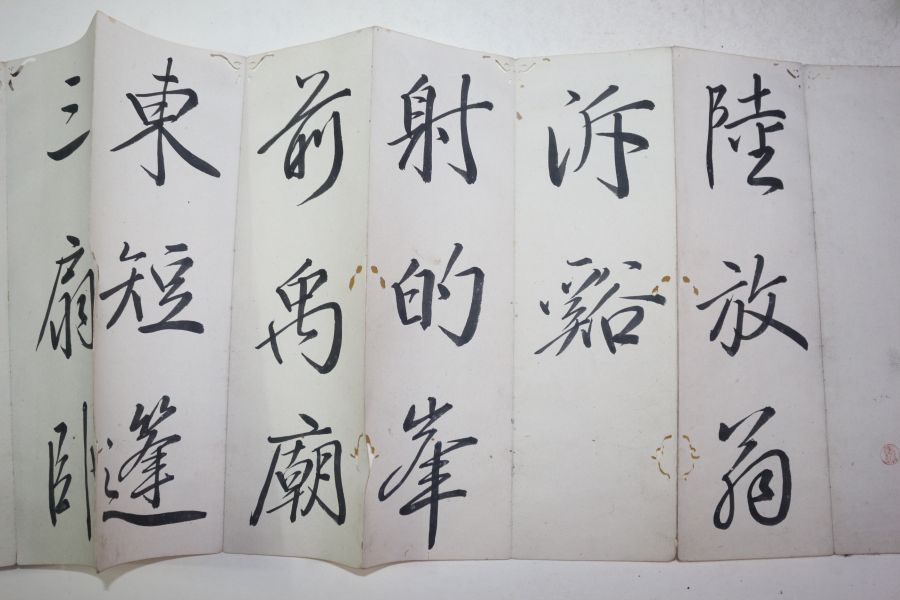 陸放翁
泝谿
射的峯
前禹廟
東短篷
三扇卧